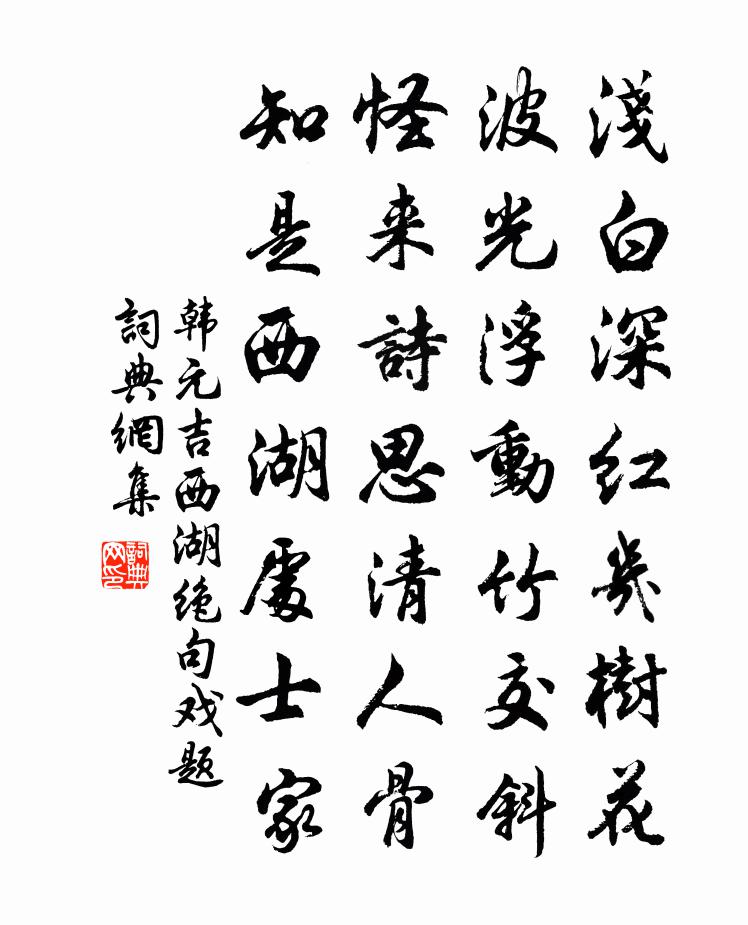 淺白深红幾樹花
波光浮動竹交斜
怪来詩思清人骨
知是西湖處士家
韩元吉西湖绝句戏题
詞典網集
詞典网印